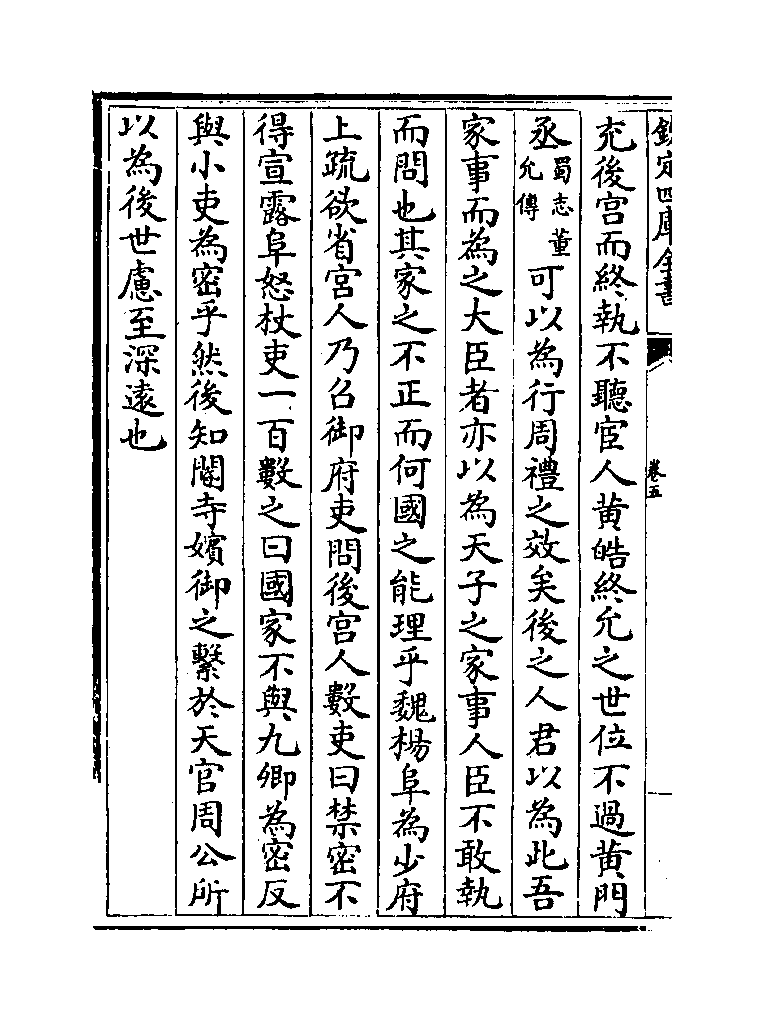 欽定四庫全書
卷五
充後宮而終執不聽宦人黃皓終允之世位不過黃門
丞蜀志董允傳可以為行周禮之效矣後之人君以為此吾
家事而為之大臣者亦以為天子之家事人臣不敢執
而問也其家之不正而何國之能理乎魏楊阜為少府
上疏欲省宮人乃召御府吏問後宮人數吏曰禁密不
得宣露阜怒杖吏一百數之曰國家不與九卿為密反
與小吏為密乎然後知閹寺嬪御之繫於天官周公所
以為後世慮至深遠也